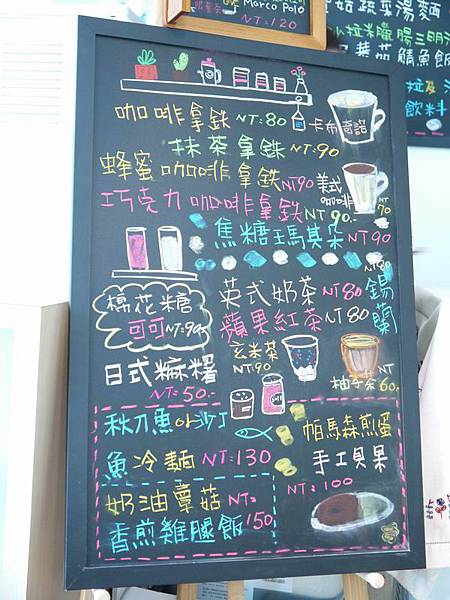 Marco Polo
NT:120
菇蔬菜湯麵
飲料
咖啡拿鉄 NT:80 卡布奇諾
抹茶拿鉄 NT:90
蜂蜜咖啡拿鉄 NT90
美式咖啡 NT70
巧克力咖啡拿鉄 NT90.-
焦糖瑪其朵 NT90
棉花糖
可可 NT:90.-
英式奶茶 NT80
錫蘭
NT80
蘋果紅茶 NT80
日式麻糬
NT:50.-
玄米茶
NT90
柚子茶 NT60.
秋刀魚 沙丁
魚冷麵 NT:130
帕馬森煎蛋
手工貝果
NT:100
奶油蕈菇 NT:
香煎雞腿飯 150